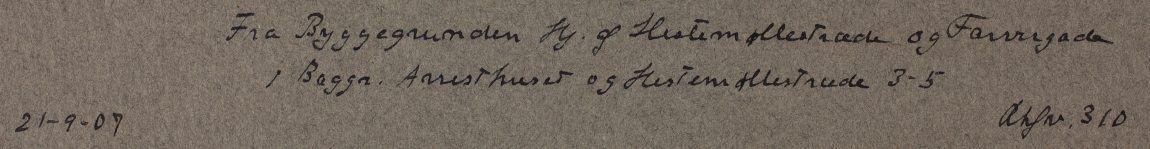 Fra Byggegrunden Hj. af Hestemøllestræde og Farvergade
i Baggr. Arresthuset og Hestemøllestræde 3-5
21-9-07
310